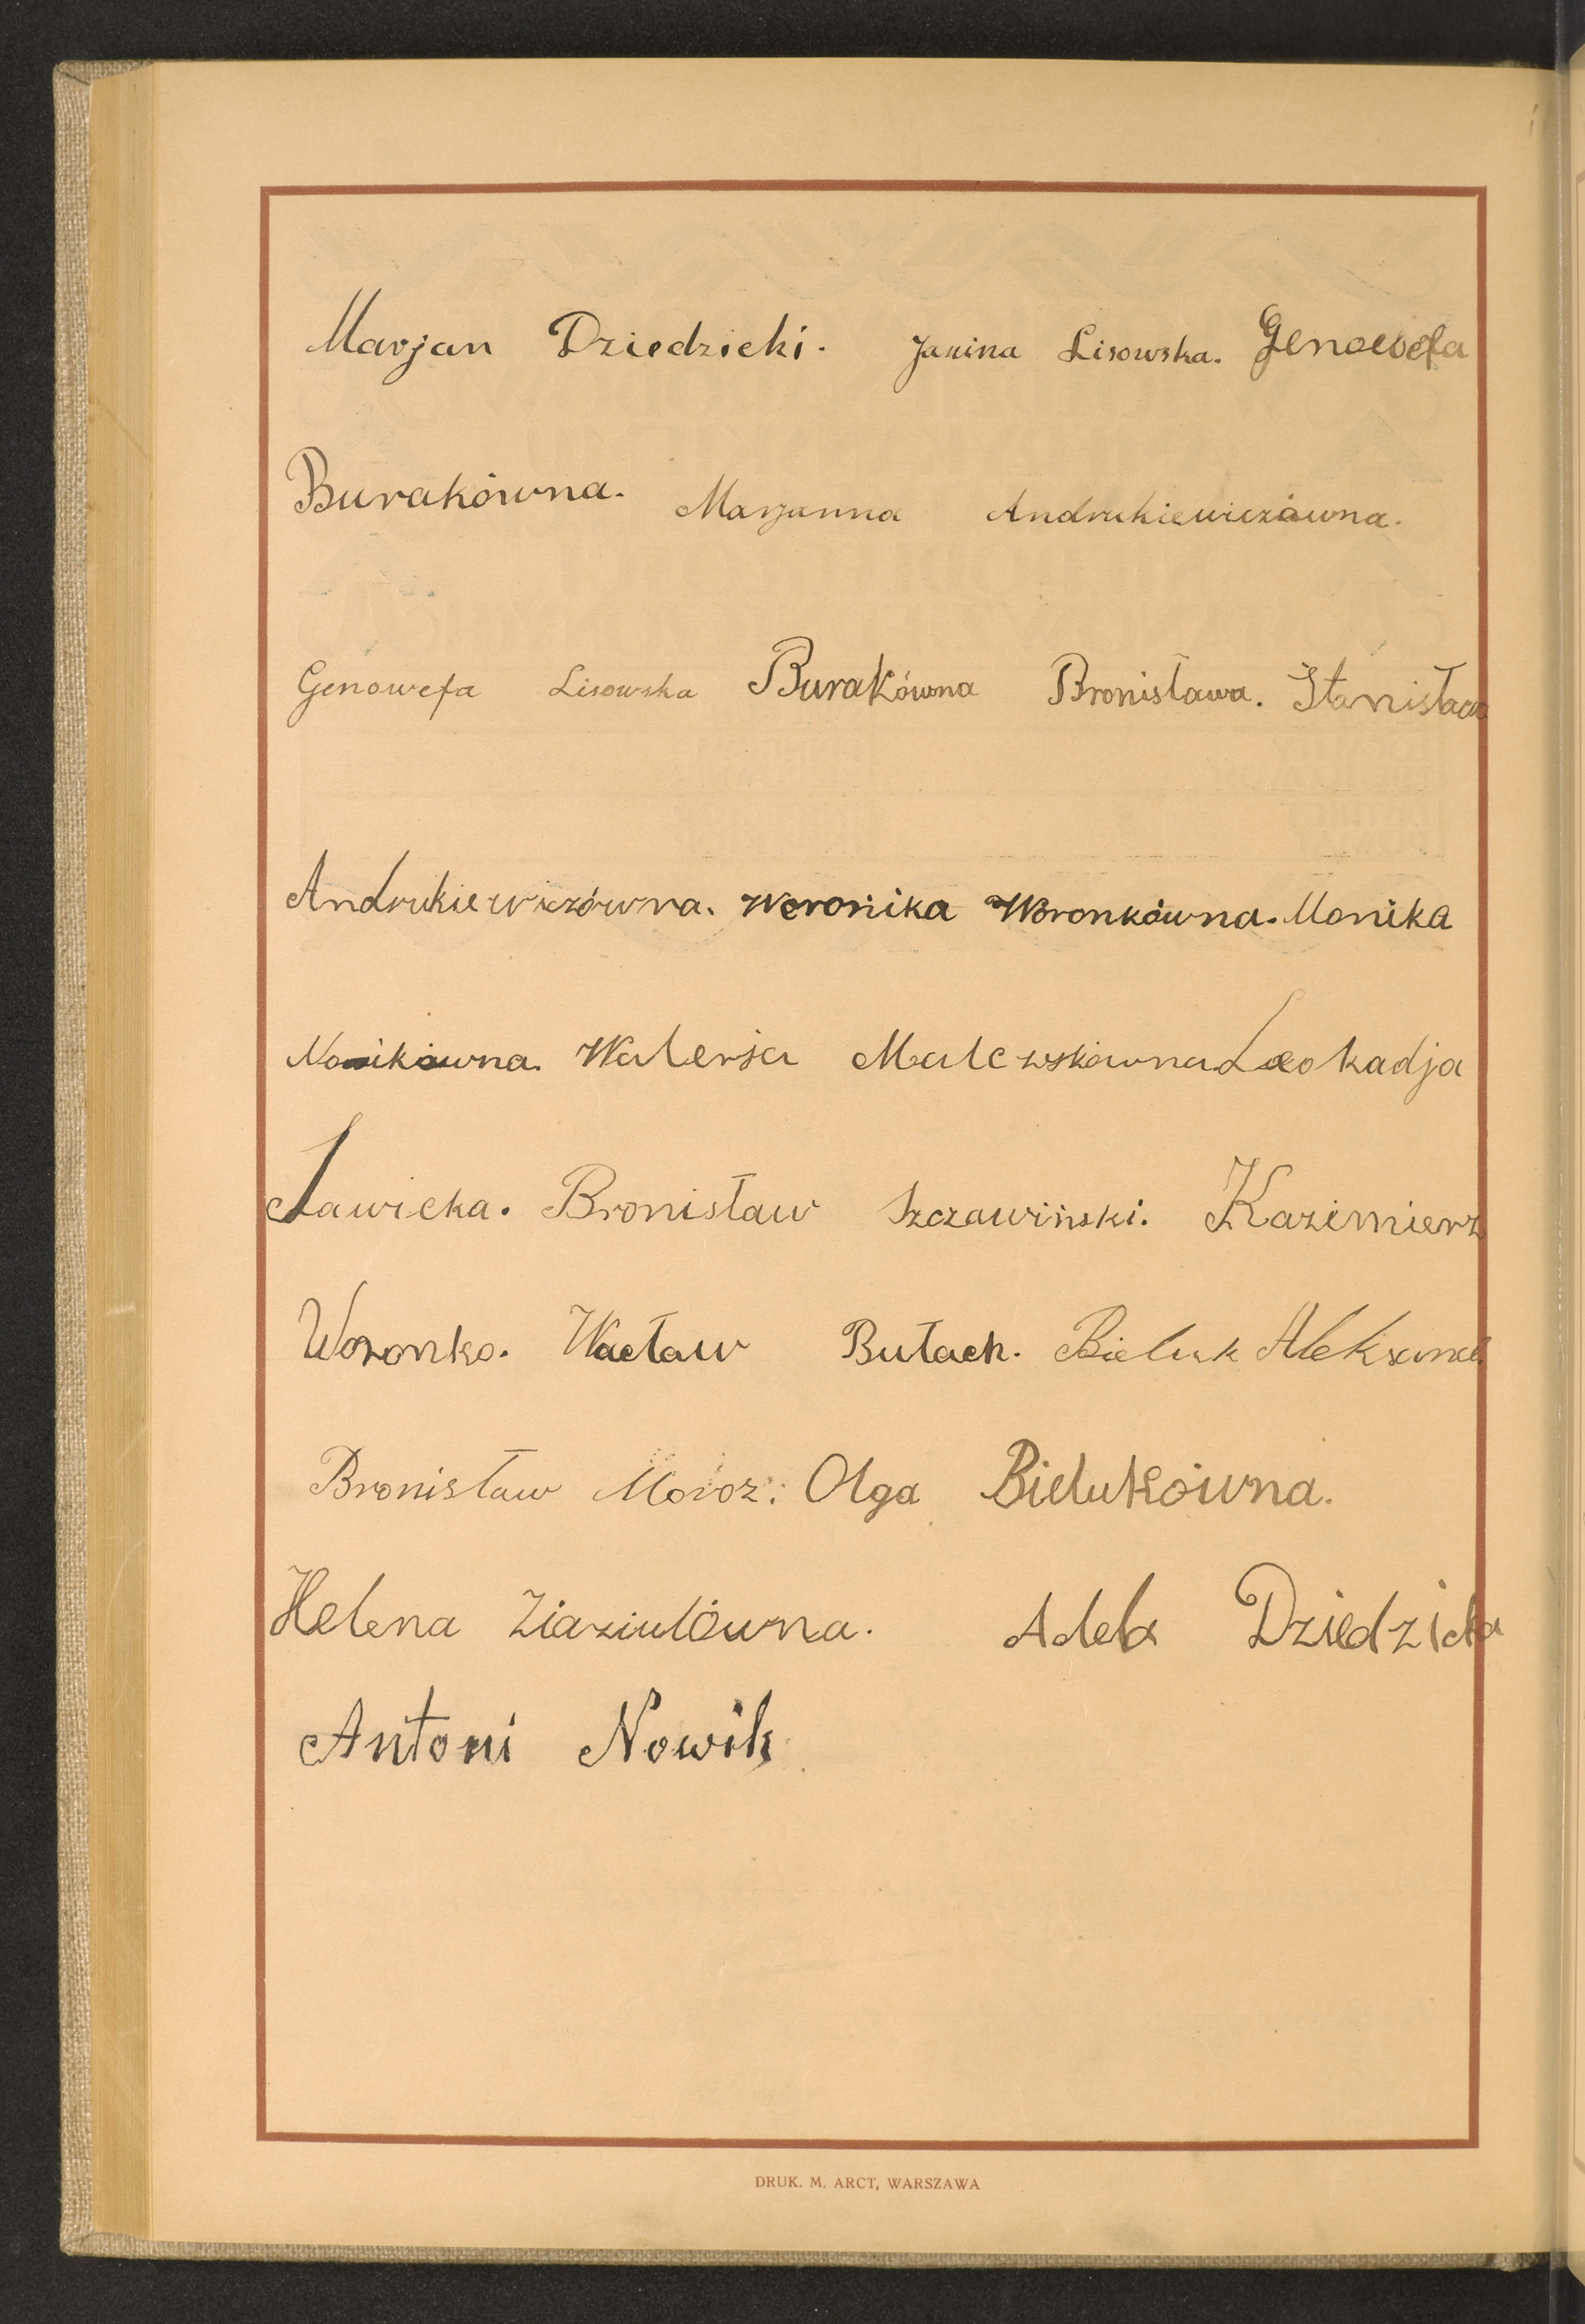 Marjan Dziedzicki. Janina Lisowska. Genowefa
Burakówna. Marjanna Andrukiewiczówna.
Genowefa Lisowska Burakówna Bronisława. Stanisław
Andrukiewiczówna. Weronika Woronkówna. Monika
Nowikówna. Waleria Malewskówna Leokadja
Sawicka. Bronisław Szczawiński. Kazimierz
Woronko. Wacław Bułach. Bieluk Aleksand.
Bronisław Moroz. Olga Bielukówna.
Helena Ziaziulówna. Adela Dziedzicka
Antoni Nowik
DRUK. M. ARCT, WARSZAWA